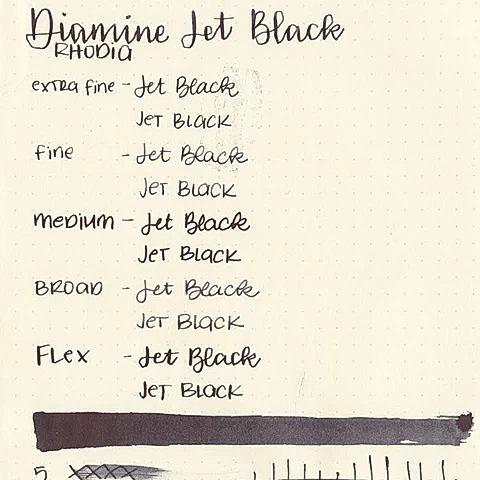 Diamine Jet Black
RHODIA
extra fine - Jet Black
JET BLACK
fine - Jet Black
JET BLACK
medium - Jet Black
JET BLACK
BROAD - Jet Black
JET BLACK
FLex - Jet Black
JET BLACK
5